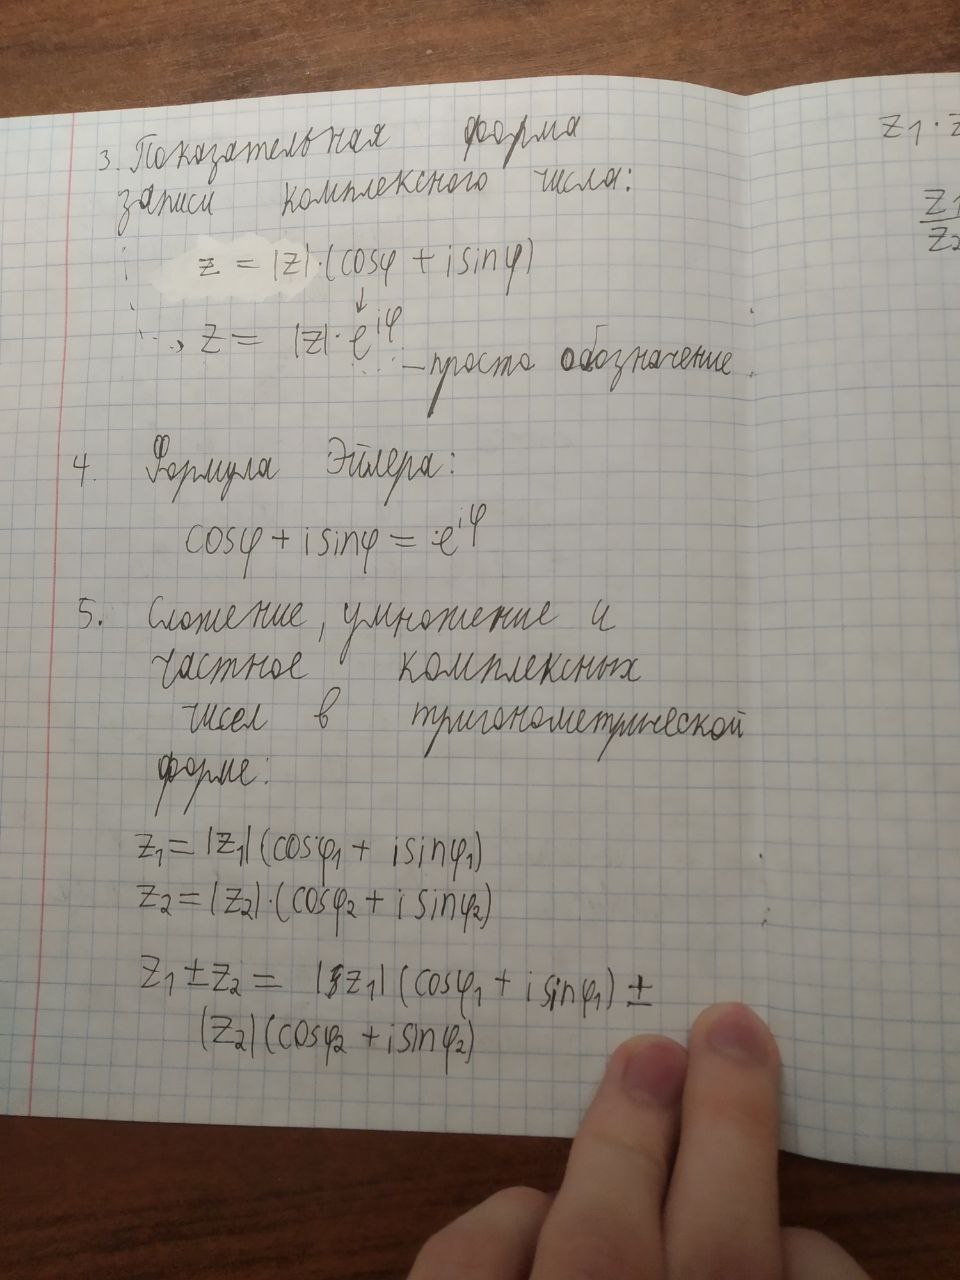 3. Показательная форма
записи комплексного числа:
z = |z|·(cosφ + i sinφ)
z = |z|·e^{iφ}
– просто обозначение.
4. Формула Эйлера:
cosφ + i sinφ = e^{iφ}
5. Сложение, умножение и
частное комплексных
чисел в тригонометрической
форме:
z₁ = |z₁|(cosφ₁ + i sinφ₁)
z₂ = |z₂|·(cosφ₂ + i sinφ₂)
z₁ ± z₂ = |z₁|(cosφ₁ + i sinφ₁) ±
|z₂|(cosφ₂ + i sinφ₂)
z₁ · z
z₁
z₂